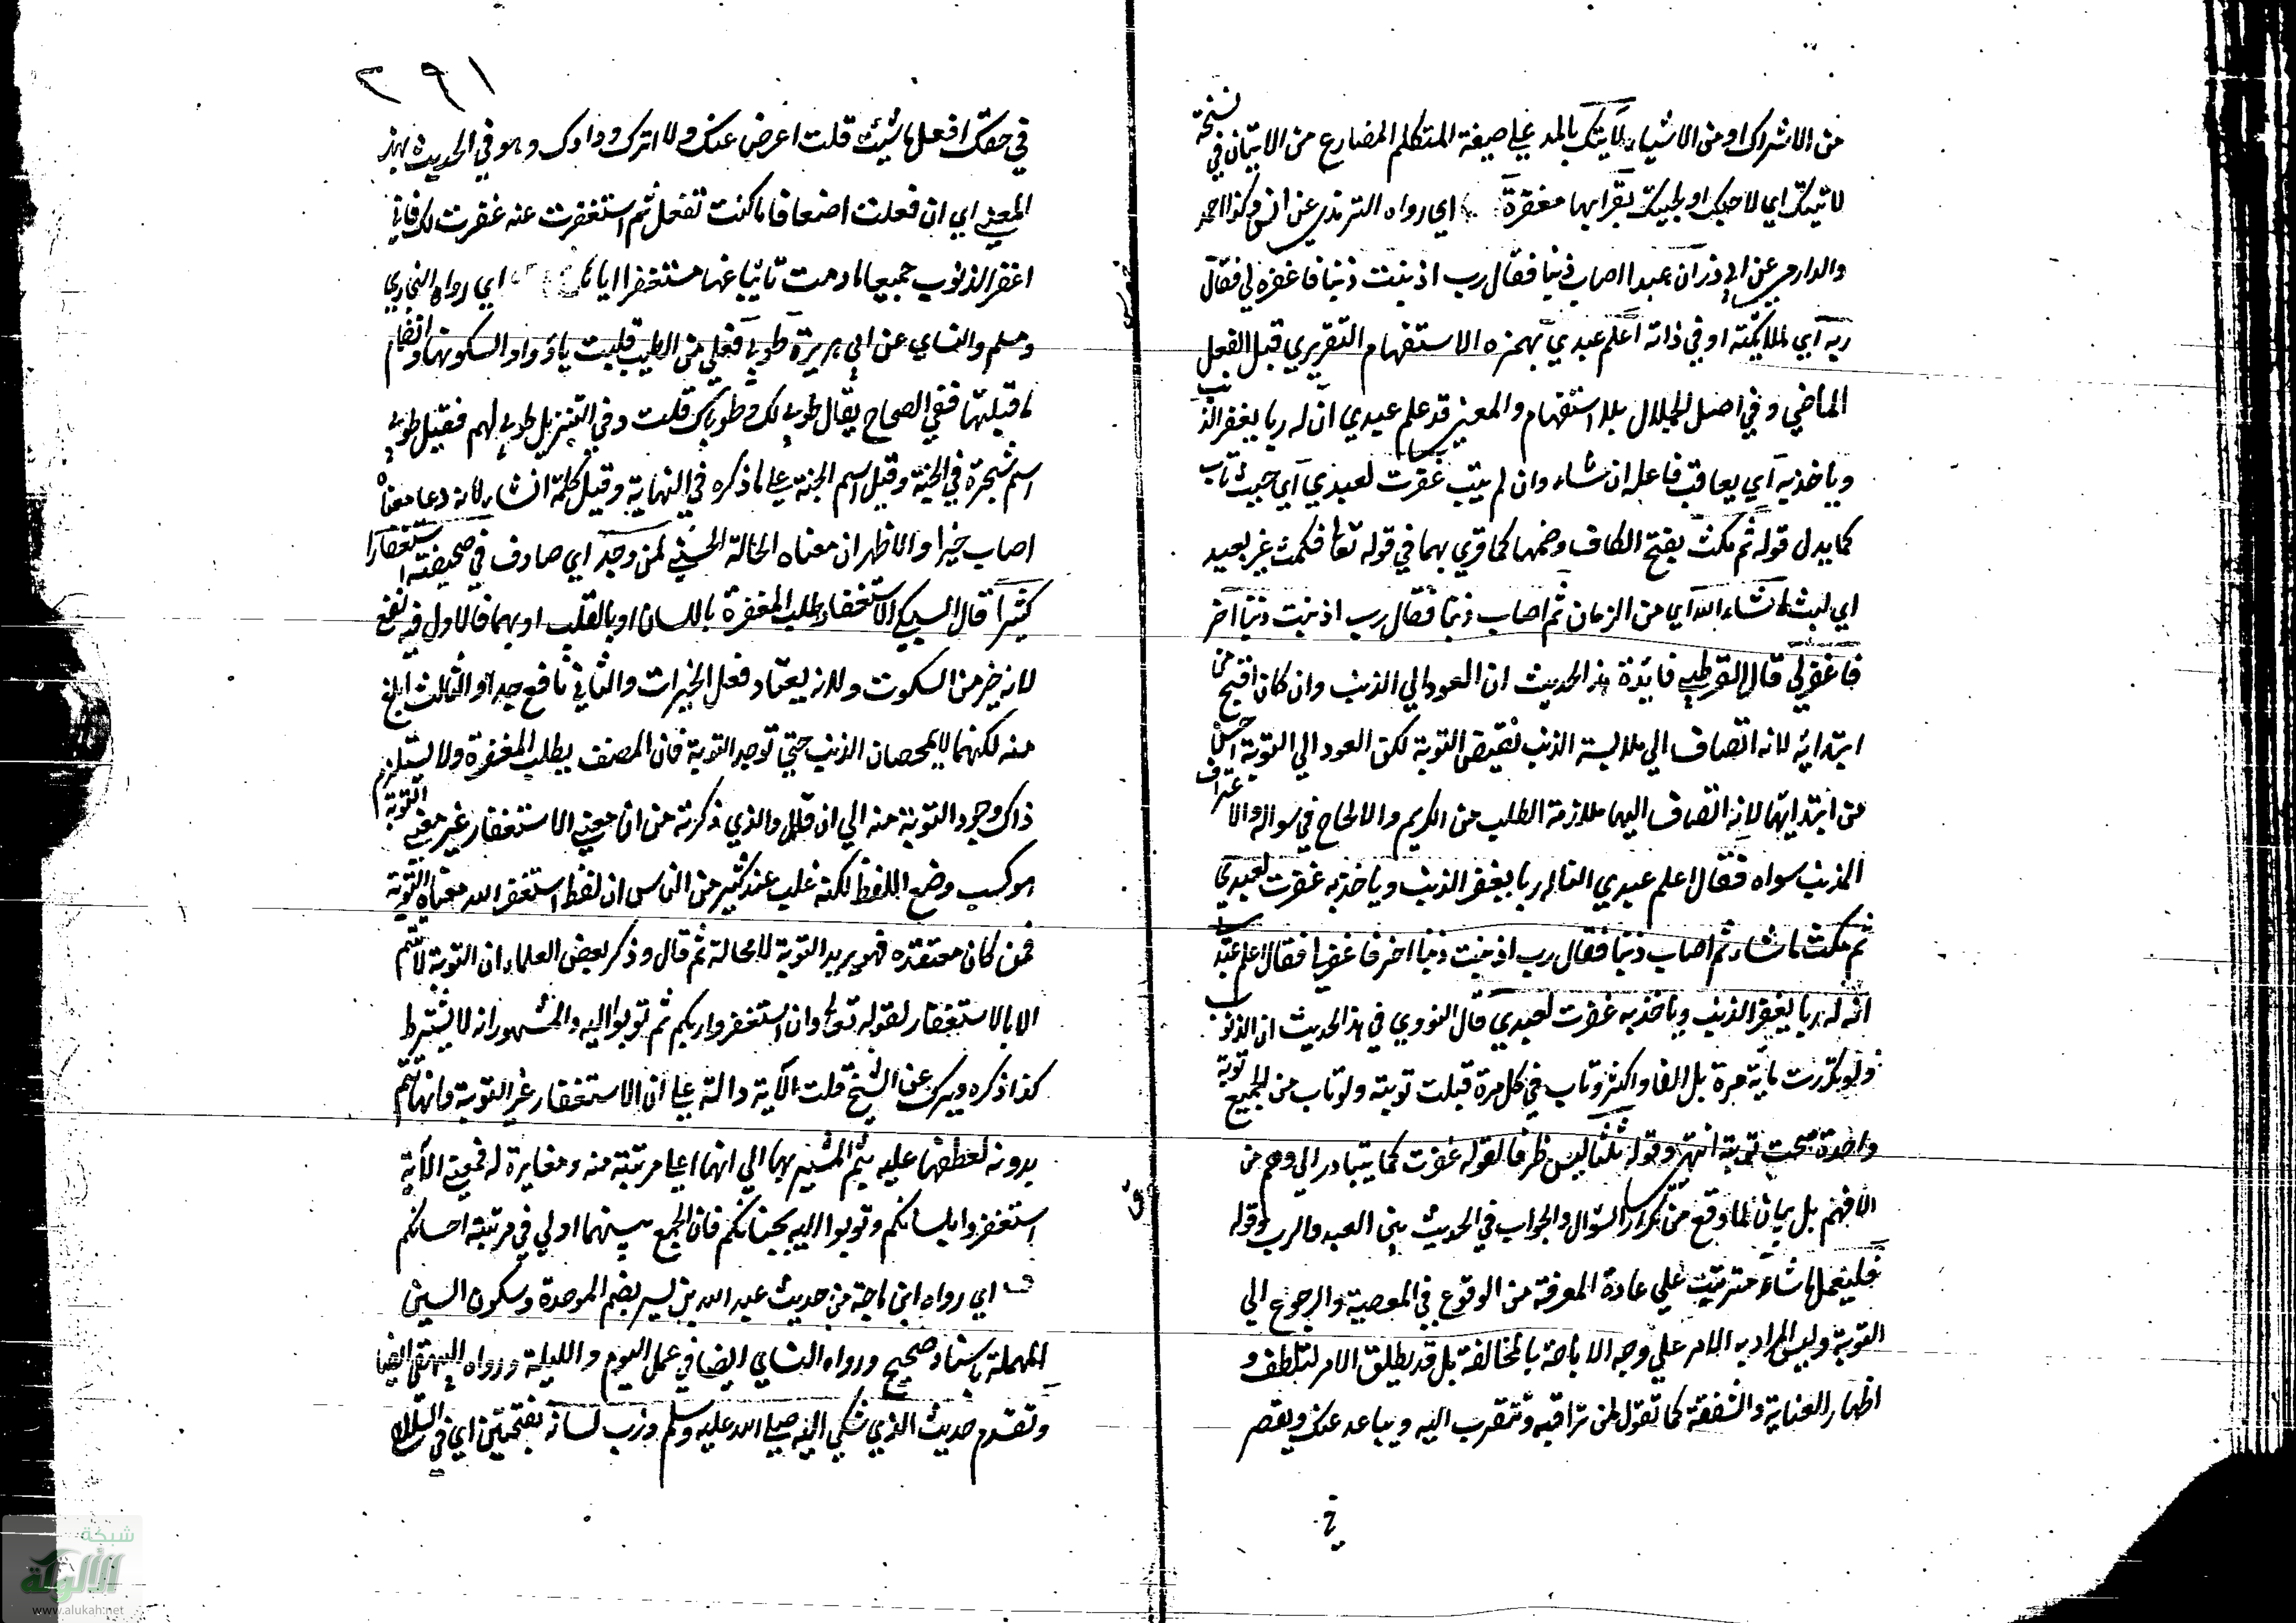 من الاشراك او من الاشياء لآتيتك بالمد علي صيغة المتكلم المضارع من الاتيان في نسخة
لاتيتك اي لاجبتك او لجيتك بقرابها مغفرة اي رواه الترمذي عن انس وكذا احمد
والدارمي عن ابي ذر ان عبدا اصاب ذنبا فقال رب اذنبت ذنبا فاغفره لي فقال
ربه اي لملايكته او في ذاته اعلم عبدي بهمزه الاستفهام التقريري قبل الفعل
الماضي وفي اصل الجلال بلا استفهام والمعني قد علم عبدي ان له ربا يغفر الذنب
وياخذ به اي يعاقب فاعله ان شاء وان لم يتب غفرت لعبدي اي حيث تاب
كما يدل قوله ثم مكث بفتح الكاف وضمها كما قري بهما في قوله تعالى فمكث غير بعيد
اي لبث ما شاء الله اي من الزمان ثم اصاب ذنبا فقال رب اذنبت ذنبا آخر
فاغفر لي قال القرطبي فايدة هذا الحديث ان العود الي الذنب وان كان اقبح من
ابتدائه لانه انضاف الي ملابسة الذنب نقيض التوبة لكن العود الي التوبة احسن
من ابتدايها لانه انضاف اليها ملازمة الطلب من الكريم والالحاح في سواله والاعتراف
المذنب سواه فقال اعلم عبدي ان له ربا يغفر الذنب وياخذ به غفرت لعبدي
ثم مكث ما شاء ثم اصاب ذنبا فقال رب اذنبت ذنبا اخر فاغفر لي فقال اعلم عبدي
ان له ربا يغفر الذنب وياخذ به غفرت لعبدي قال النووي في هذا الحديث ان الذنوب
ولو تكررت ماية مرة بل الفا واكثر وتاب في كل مرة قبلت توبته ولو تاب من الجميع توبة
واحدة صحت توبته انتهي وقوله ثلثا ليس ظرفا لقوله غفرت كما يتبادر الي وهم من
الافهم بل بيان لما وقع من تكرار السؤال والجواب في الحديث بين العبد والرب وقوله
فليفعل ما شاء مترتب علي عادة المعرفة من الوقوع في المعصية والرجوع الي
التوبة وليس المراد به الامر علي وجه الاباحة بالمخالفة بل قد يطلق الامر لتلطف و
اظهار العناية والشفقة كما تقول لمن تراقبه وتتقرب اليه ويباعد عنك ويقصر
في
٢٩١
في حقك افعل ما شيت قلت اعرض عنك ولا اترك ودادك وهو في الحديث بهذا
المعني اي ان فعلت اضعاف ما كنت تفعل ثم استغفرت عنه غفرت لك فاني
اغفر الذنوب جميعا ما دمت تائبا عنها مستغفرا اياها اي رواه البخاري
ومسلم والنساي عن ابي هريرة طوبي فعلي من الطيب قلبت ياؤه واوا لسكونها وانضمام
ما قبلها ففي الصحاح يقال طوبي لك وطوباك قلت وفي التنزيل طوبي لهم فقيل طوبي
اسم شجرة في الجنة وقيل اسم الجنة علي ما ذكره في النهاية وقيل كلمة انشاء لانه دعا معناه
اصاب خيرا والاظهر ان معناه الحالة الحسني لمن وجد اي صادف في صحيفته استغفارا
كثيرا قال السبكي الاستغفار طلب المغفرة باللسان او بالقلب او بهما فالاول فيه نفع
لانه خير من السكوت ولانه يعتاد فعل الخيرات والثاني نافع جدا والثالث ابلغ
منه لكنهما لا يمحصان الذنب حتي توجد التوبة فان المصنف يطلب المغفرة ولا يستلزم
ذاك وجود التوبة منه الي ان قال والذي ذكرته من ان معني الاستغفار غير معني التوبة
هو بحسب وضع اللفظ لكنه غلب عند كثير من الناس ان لفظ استغفر الله معناه التوبة
فمن كان معتقده فهو يريد التوبة لا محالة ثم قال وذكر بعض العلماء ان التوبة لا تتم
الا بالاستغفار لقوله تعالى وان استغفروا ربكم ثم توبوا اليه والمشهور انه لا يشترط
كذا ذكره ميرك عن الشيخ قلت الآية دالة علي ان الاستغفار غير التوبة وانها تتم
بدونه لعطفها عليه بثم المشير بها الي انها اعلي مرتبة منه ومغايرة له فمعني الآية
استغفروا بلسانكم وتوبوا اليه بجنانكم فان الجمع بينهما اولي في مرتبة احسانكم
ق اي رواه ابن ماجة من حديث عبد الله بن بسر بضم الموحدة وسكون السين
المهملة باسناد صحيح ورواه النساي ايضا في عمل اليوم والليلة ورواه البيهقي ايضا
وتقدم حديث الذي شكي اليه صلي الله عليه وسلم ذرب لسانه بفتحتين اي في
شبكة
الألوكة
www.alukah.net